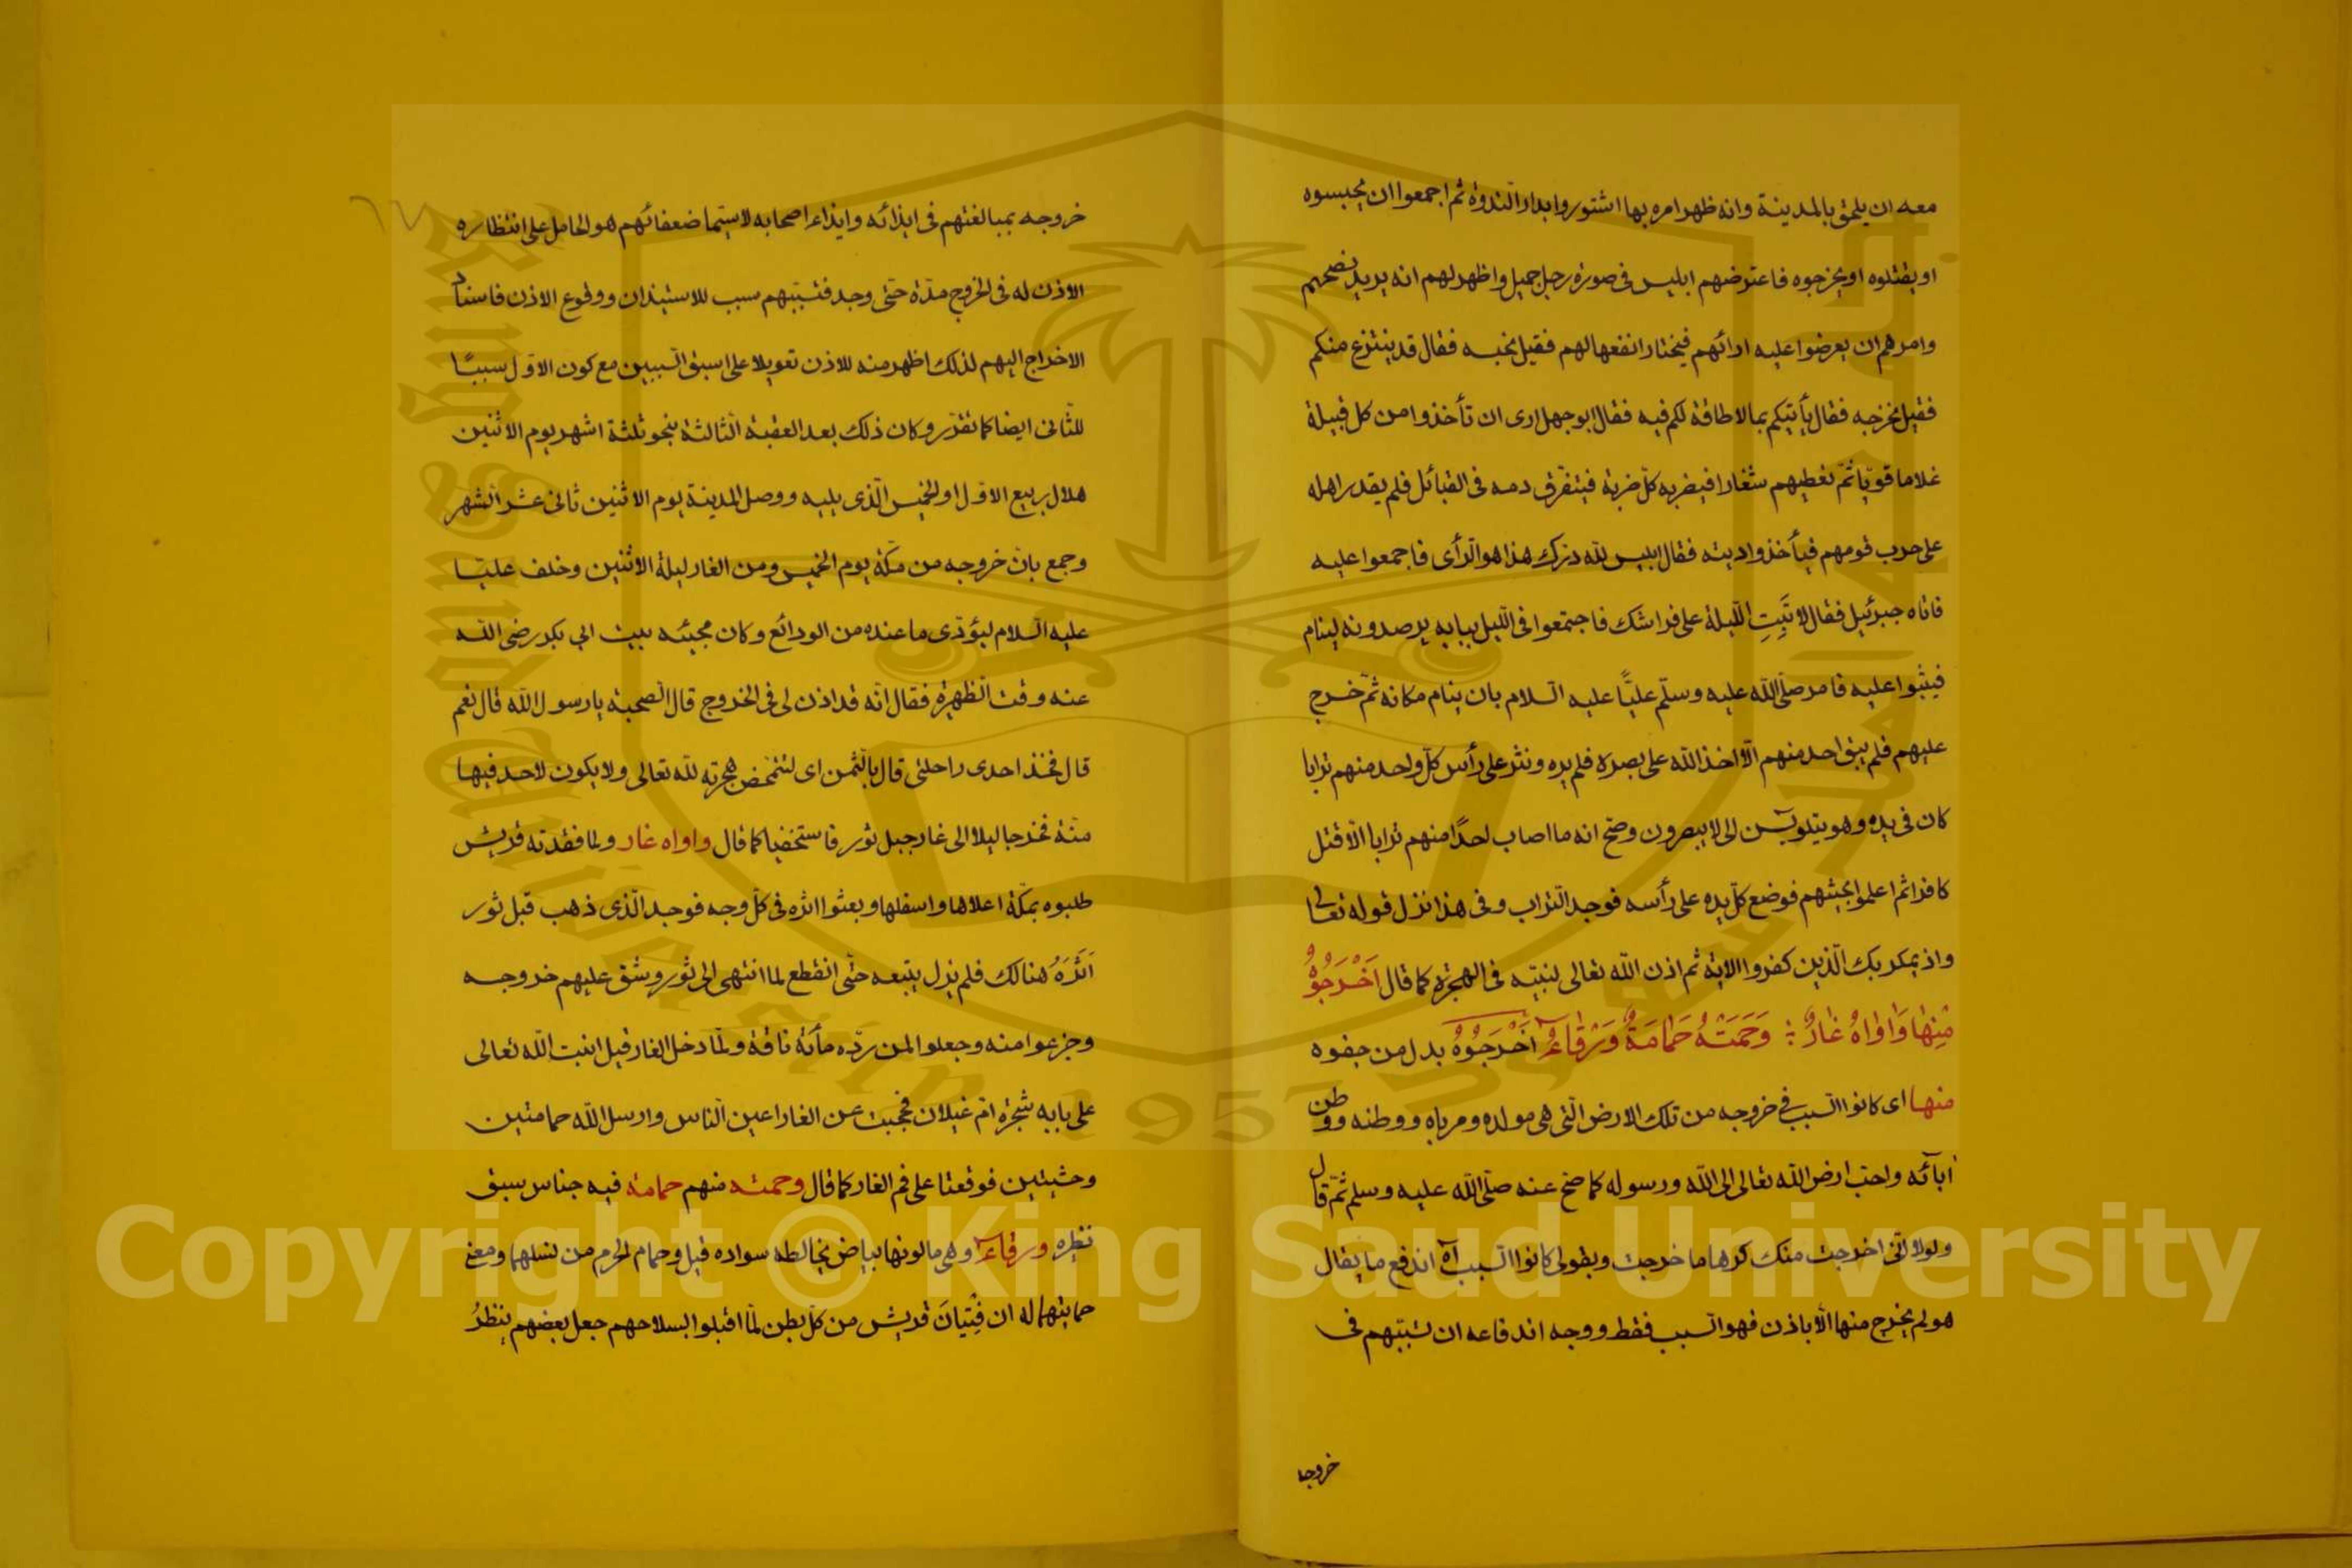 معه ان يلحق بالمدينة وانه ظهر امره بها اشتوروا بدار الندوة ثم اجمعوا ان يحبسوه
او يقتلوه او يخرجوه فاعترضهم ابليس فى صورة رجل جميل واظهر لهم انه يريد نصحهم
وامرهم ان يعرضوا عليه ارائهم فيختار انفعها لهم فقيل نحبسه فقال قد ينتزع منكم
فقيل نخرجه فقال يأتيكم بما لا طاقة لكم فيه فقال ابو جهل ارى ان تأخذوا من كل قبيلة
غلاما قويّا ثمّ نعطيهم شفارا فيضربه كلّ ضربة فيتفرّق دمه فى القبائل فلم يقدر اهله
على حرب قومهم فيأخذوا ديته فقال ابليس لله درك هذا هو الرأى فاجمعوا عليه
فاتاه جبرئيل فقال لا تَبِتِ اللّيلة على فراشك فاجتمعوا فى اللّيل ببابه يرصدونه لينام
فيثبوا عليه فامر صلّى اللّه عليه وسلّم عليّا عليه السلام بان ينام مكانه ثمّ خرج
عليهم فلم يبق احد منهم الّا اخذ اللّه على بصره فلم يره ونثر على رأس كلّ واحد منهم ترابا
كان فى يده وهو يتلو يس الى لا يبصرون وصحّ انه ما اصاب احدًا منهم ترابا الّا قتل
كافرا ثم اعلموا بخيبتهم فوضع كلّ يده على رأسه فوجد التراب وفى هذا نزل قوله تعالى
واذ يمكر بك الّذين كفروا الاية ثم اذن اللّه تعالى لنبيّه فى الهجرة كما قال اَخْرَجُوْهُ
مِنْهَا وَاٰوَاهُ غَارٌ ؛ وَحَمَتْهُ حَمَامَةٌ وَرْقَاءُ اَخْرَجُوْهُ بدل من جفوه
منها اى كانوا السبب فى خروجه من تلك الارض الّتى هى مولده ومرباه ووطنه ووطن
آبائه واحبّ ارض اللّه تعالى الى اللّه ورسوله كما صحّ عنه صلّى اللّه عليه وسلم ثمّ قال
ولولا انّى اخرجت منك كرها ما خرجت وبقولى كانوا السبب آه اندفع ما يقال
هو لم يخرج منها الّا باذن فهو السبب فقط ووجه اندفاعه ان تسبّبهم فى
خروجه
٦٧
خروجه بمبالغتهم فى ايذائه وايذاء اصحابه لاسيّما ضعفائهم هو الحامل على انتظاره
الاذن له فى الخروج مدّة حتى وجد فتسبّبهم سبب للاستيذان ووقوع الاذن فاسناد
الاخراج اليهم لذلك اظهر منه للاذن تعويلا على اسبق السببين مع كون الاوّل سببًا
للثّانى ايضا كما تقرّر وكان ذلك بعد العقبة الثالثة بنحو ثلثة اشهر يوم الاثنين
هلال ربيع الاوّل او الخميس الّذى يليه ووصل المدينة يوم الاثنين ثانى عشر الشهر
وجمع بانّ خروجه من مكّة يوم الخميس ومن الغار ليلة الاثنين وخلف عليّا
عليه السلام ليؤدّى ما عنده من الودائع وكان مجيئه بيت ابى بكر رضى اللّه
عنه وقت الظهيرة فقال انّه قد اذن لى فى الخروج قال الصحبة يا رسول اللّه قال نعم
قال فخذ احدى راحلتى قال بالثّمن اى لتتمحّض هجرته للّه تعالى ولا يكون لاحد فيها
منّة فخرجا ليلا الى غار جبل ثور فاستخفيا كما قال واواه غار ولما فقدته قريش
طلبوه بمكّة اعلاها واسفلها وبعثوا اثره فى كلّ وجه فوجد الّذى ذهب قبل ثور
اَثَرَهُ هنالك فلم يزل يتبعه حتّى انقطع لما انتهى الى ثور وشق عليهم خروجه
وجزعوا منه وجعلوا لمن ردّه مأئة ناقة ولمّا دخل الغار قيل انبت اللّه تعالى
على بابه شجرة امّ غيلان فحجبت عن الغار اعين النّاس وارسل اللّه حمامتين
وحشيتين فوقعتا على فم الغار كما قال وحمته منهم حمامة فيه جناس سبق
نظيره ورقاء وهى ما لونها بياض يخالطه سواده قيل وحمام الحرم من نسلهما ومعنى
حمايتهما له ان فِتْيانَ قريش من كلّ بطن لمّا اقبلوا بسلاحهم جعل بعضهم ينظرُ
King Saud University
1957
Copyright © King Saud University